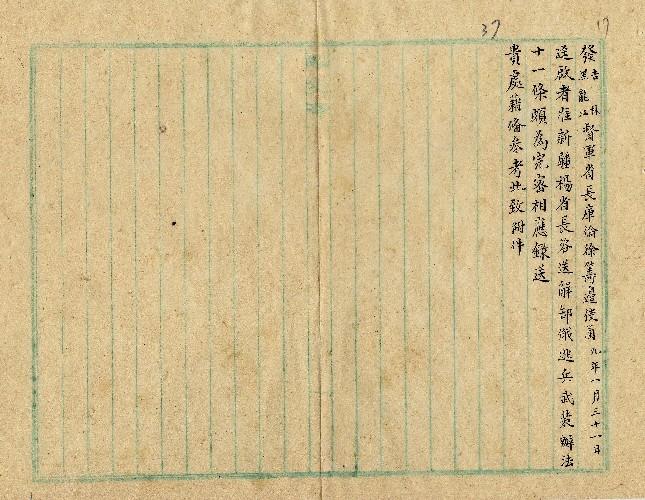 37
17
發吉林黑龍江督軍省長庫倫徐籌邊使函 九年八月三十一日
逕啟者准新疆楊省長咨送解卸俄逃兵武裝辦法
十一條頗為完密相應錄送
貴處藉備參考此致附件